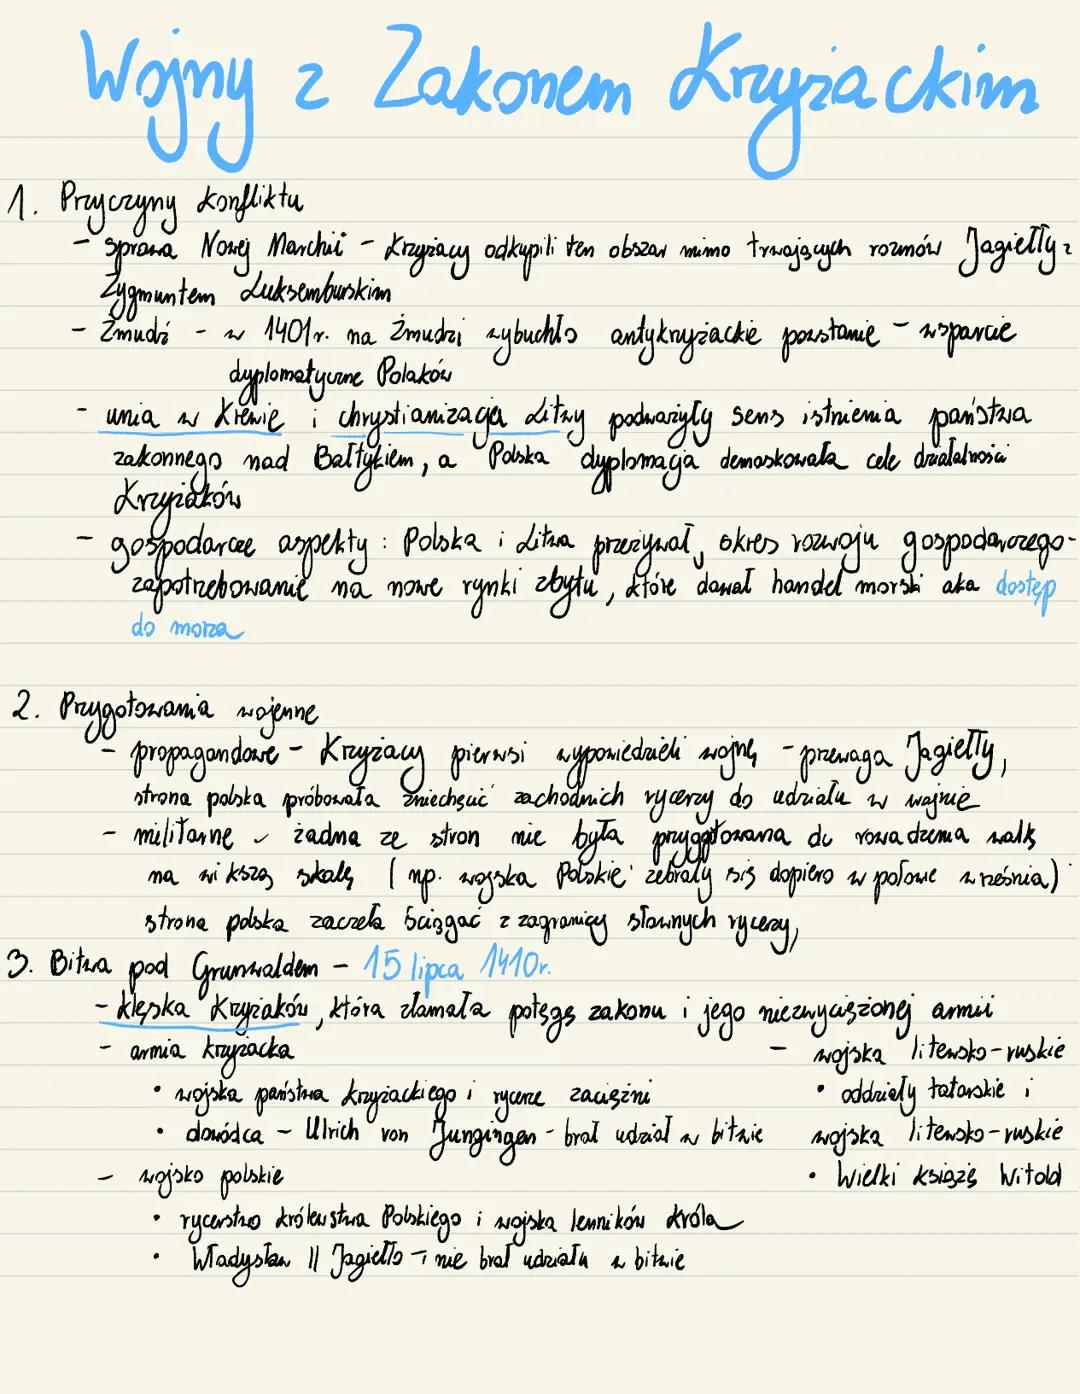 Wojny z Zakonem Krzyżackim
1. Przyczyny konfliktu
- sprawa Nowej Marchii - Krzyżacy odkupili ten obszar mimo trwających rozmów Jagiełły z
Zygmuntem Luksemburskim
- Żmudź - w 1401r. na Żmudzi wybuchło antykrzyżackie powstanie - wsparcie
dyplomatyczne Polaków
- unia w Krewie i chrystianizacja Litwy podważyły sens istnienia państwa
zakonnego nad Bałtykiem, a Polska dyplomacja demaskowała cele działalności
Krzyżaków
- gospodarcze aspekty: Polska i Litwa przeżywał, okres rozwoju gospodarczego-
zapotrzebowanie na nowe rynki zbytu, które dawał handel morski aka dostęp
do morza
2. Przygotowania wojenne
- propagandowe - Krzyżacy pierwsi wypowiedzieli wojnę - przewaga Jagiełły,
strona polska próbowała zniechęcić zachodnich rycerzy do udziału w wojnie
- militarne - żadna ze stron nie była przygotowana do rowadzenia walk
na wi kszą skalę (np. wojska Polskie zebrały się dopiero w połowie września)
strona polska zaczęła ściągać z zagranicy sławnych rycerzy,
3. Bitwa pod Grunwaldem - 15 lipca 1410r.
- klęska Krzyżaków, która złamała potęgę zakonu i jego niezwyciężonej armii
- armia krzyżacka
• wojska państwa krzyżackiego i rycerze zaciężni
• dowódca - Ulrich von Jungingen - brał udział w bitwie
- wojska litewsko-ruskie
• oddziały tatarskie i
wojska litewsko-ruskie
• Wielki książę Witold
- wojsko polskie
• rycerstwo królewstwa Polskiego i wojska lenników króla
• Władysław II Jagiełło - nie brał udziału w bitwie